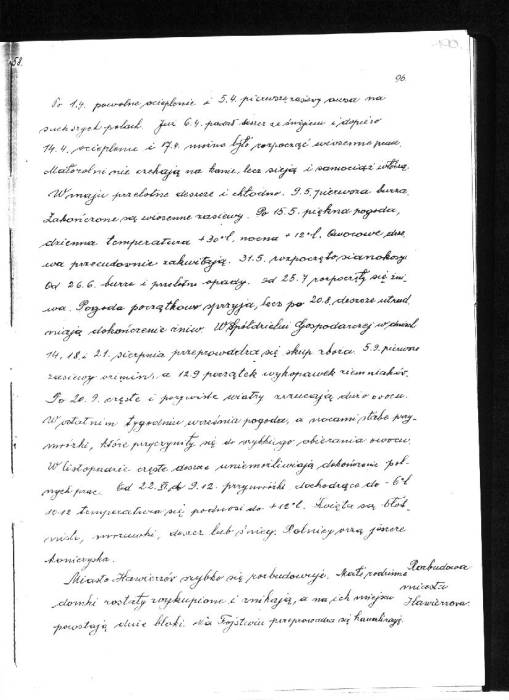 58.
96
Po 1.4. powolne ocieplenie i 5.4. pierwsze zasiewy owsa na
suchszych polach. Już 6.4. padał deszcz ze śniegiem i dopiero
14.4. ocieplenie i 17.4. można było rozpocząć wiosenne prace.
Małorolni nie czekają na konie, lecz sieją i samochodź włóczą.
W maju przelotne deszcze i chłodno. 9.5. pierwsza burza.
Zakończone są wiosenne zasiewy. Po 15.5. piękna pogoda,
dzienna temperatura +30°C, nocna +12°C. Owocowe drze
wa przecudownie zakwitają. 31.5. rozpoczęto sianokosy
Od 26.6. burze i przelotne opady. Od 25.7 rozpoczęły się żni
wa. Pogoda początkowo sprzyja, lecz po 20.8. deszcze utrud
niają dokończenie żniw. W Spółdzielni Gospodarczej w dniach
14, 18 i 21. sierpnia przeprowadza się skup zboża. 5.9. pierwsze
zasiewy ozimin, a 12.9 początek wykopawek ziemniaków.
Po 20.9. częste i porywiste wiatry zrzucają dużo owocu.
W ostatnim tygodniu września pogoda, a nocami słabe przy
mrózki, które przyczyniły się do szybkiego obierania owocu.
W listopadzie częste deszcze uniemożliwiają dokończenie pol
nych prac. Od 22.XI. do 9.12. przymrózki dochodzące do -6°C
10.12 temperatura się podnosi do +12°C. Święta są błot
niste, mrzawki, deszcz lub śnieg. Rolnicy orzą jeszcze
koniczyska.
Miasto Hawierzów szybko się rozbudowuje. Małe rodzinne
domki zostały wykupione i znikają, a na ich miejscu
powstają duże bloki. Na Fojstwiu przeprowadza się kanalizację
Rozbudowa
miasta
Hawierzowa.